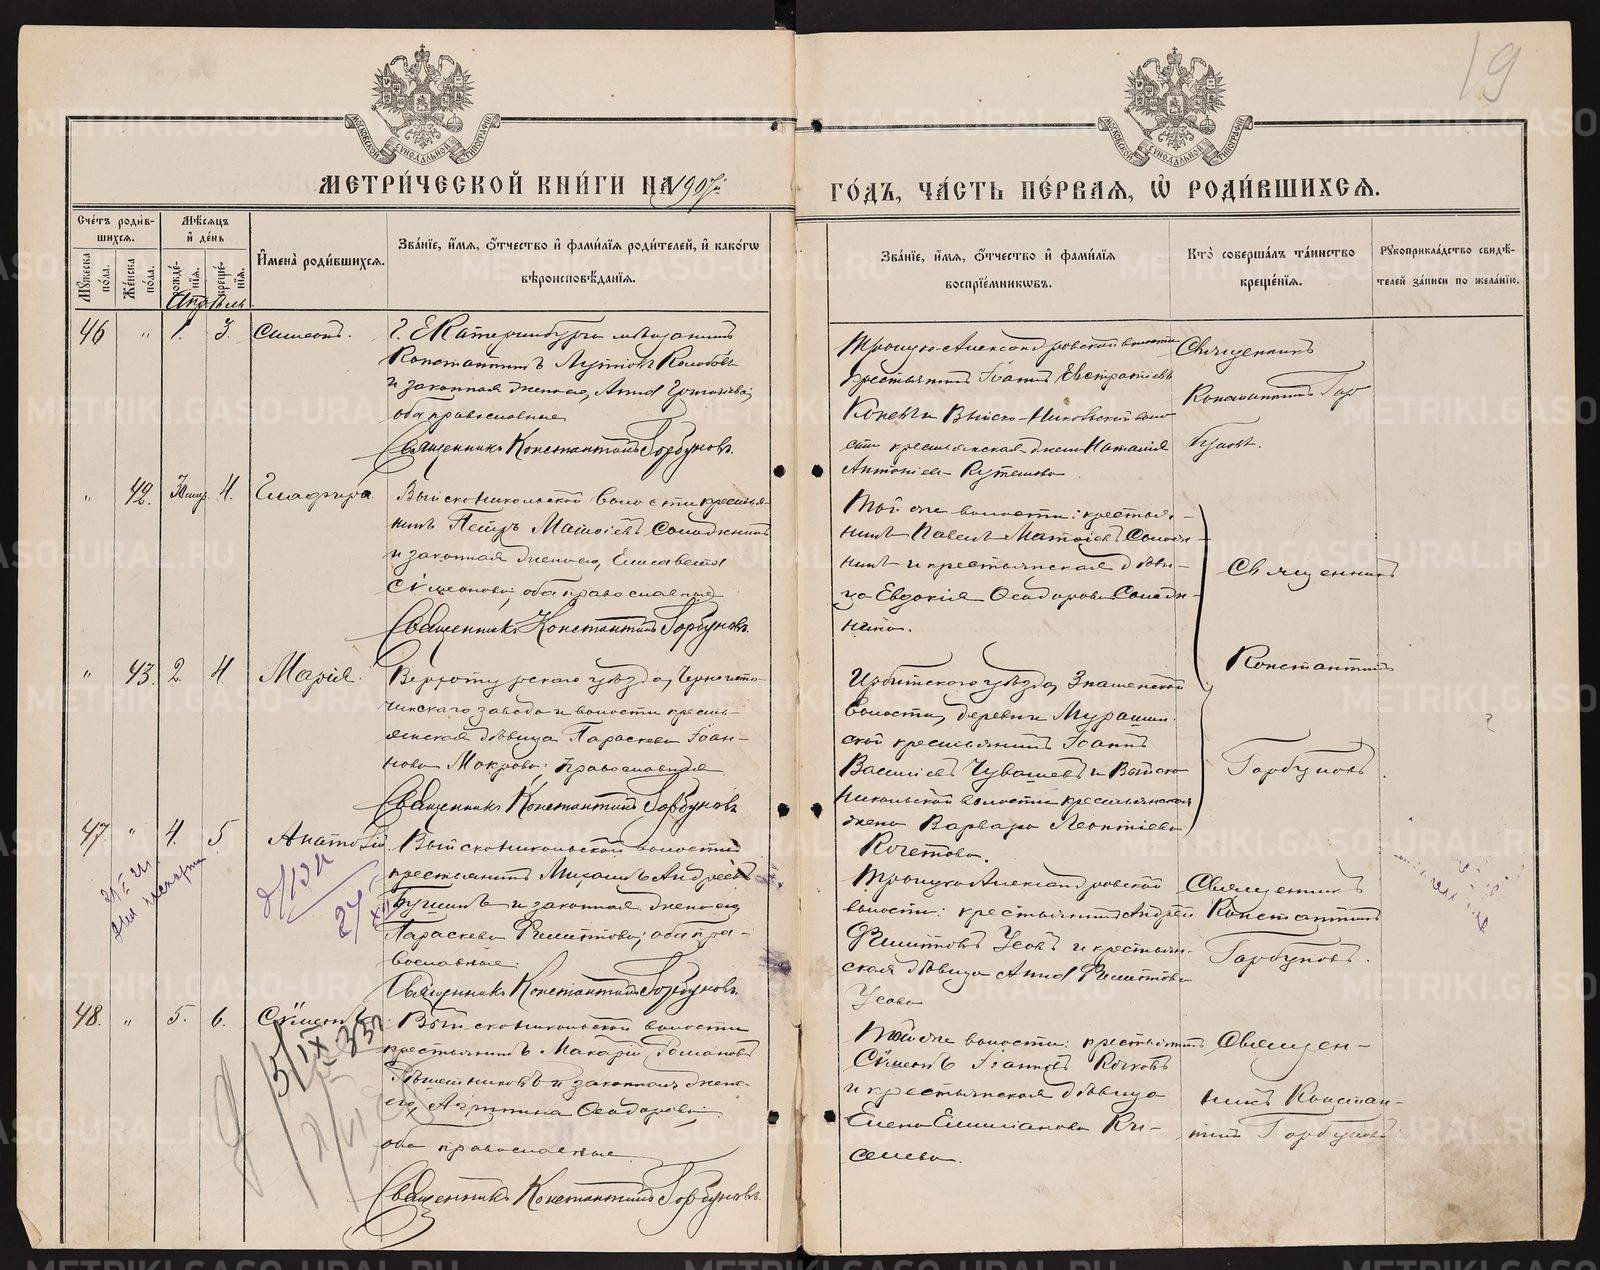 19
МЕТРИ́ЧЕСКОЙ КНИ́ГИ НА 1907й
ГО́ДЪ, ЧА́СТЬ ПЕ́РВАЯ, Ѡ҆ РОДИ́ВШИХСЯ.
Сче́тъ роди́в-
шихся.
Мꙋ́жеска по́ла.
Же́нска по́ла.
Мѣ́сяцъ
и҆ де́нь
рожде́-
нїя.
креще́-
нїя.
И҆мена̀ роди́вшихся.
Зва́нїе, и҆́мя, ѻ҆́тчество и҆ фами́лїя роди́телей, и҆ како́гѡ
вѣроисповѣ́данїя.
Зва́нїе, и҆́мя, ѻ҆́тчество и҆ фами́лїя
воспрїе́мникѡвъ.
Кто̀ соверша́лъ та́инство
креще́нїя.
Рꙋкоприкла́дство свидѣ́-
телей за́писи по жела́нїю.
Апрѣль
46 " 1. 3. Симеонъ.
г. Екатеринбурга мѣщанинъ
Константинъ
и законная жена его, Анна
оба православные
Священникъ Константинъ Горбуновъ.
Троицко-Александровской волости
крестьянинъ Іоаннъ Евстратіевъ
Выйско-Никольской воло-
сти крестьянская жена Наталія
Антоніева
Священникъ
Константинъ Гор
буновъ.
" 42. 4. Глафира.
Выйсконикольской волости крестья-
нинъ Петръ Солодкинъ
и законная жена его, Елисавета
Сѵмеонова, оба православные
Священникъ Константинъ Горбуновъ.
Той же волости: крестья-
нинъ Павелъ
нинъ и крестьянская дѣви-
ца Евдокія Ѳеодорова Солод-
кина.
Священникъ
Константинъ
Горбуновъ.
" 43. 2. 4. Марія.
Верхотурскаго уѣзда, Черноисто-
чинскаго завода и волости кресть-
янская дѣвица Параскева Іоан-
нова Мокрова, православная
Священникъ Константинъ Горбуновъ.
Ирбитскаго уѣзда, Знаменской
волости, деревни Мурашин
ской крестьянинъ Іоаннъ
Василіевъ Чувашевъ и Выйско
никольской волости крестьянская
жена Варвара Леонтіева
Кочетова.
47. " 4. 5. Анатолій
Выйсконикольской волости
крестьянинъ Михаилъ Андреевъ
и законная жена его
Параскева Филиппова, оба пра-
вославные.
Священникъ Константинъ Горбуновъ.
Троицко Александровской
волости: крестьянинъ Андрей
Филипповъ Усовъ и крестьян-
ская дѣвица Анна Филиппова
Усова
Священникъ
Константинъ
Горбуновъ.
48. " 5. 6. Сѵмеонъ
Выйсконикольской волости
крестьянинъ Макарій Романовъ
и законная жена
его, Агриппина Ѳеодорова,
оба православные
Священникъ Константинъ Горбуновъ.
Той же волости: крестьянинъ
Сѵмеонъ Іоанновъ
и крестьянская дѣвица
Елена Емиліанова Ки-
селева.
Священ-
никъ Констан-
тинъ Горбуновъ.
METRIKI.GASO-URAL.RU